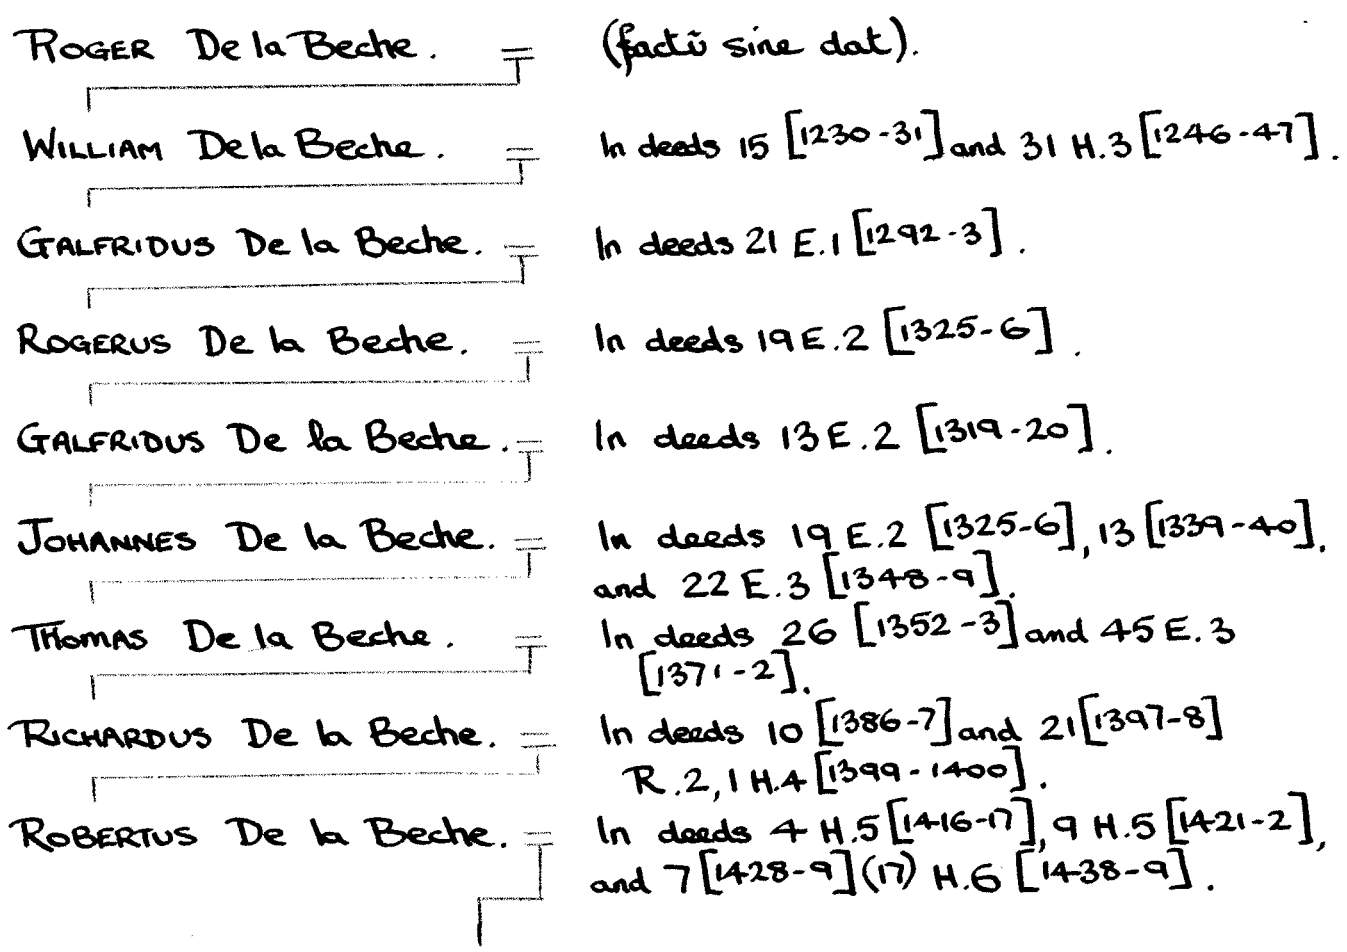 ROGER De la Beche. (factū sine dat).
WILLIAM De la Beche. In deeds 15 [1230-31] and 31 H.3 [1246-47].
GALFRIDUS De la Beche. In deeds 21 E.1 [1292-3].
ROGERUS De la Beche. In deeds 19 E.2 [1325-6].
GALFRIDUS De la Beche. In deeds 13 E.2 [1319-20].
JOHANNES De la Beche. In deeds 19 E.2 [1325-6], 13 [1339-40],
and 22 E.3 [1348-9].
THOMAS De la Beche. In deeds 26 [1352-3] and 45 E.3
[1371-2].
RICHARDUS De la Beche. In deeds 10 [1386-7] and 21 [1397-8]
R.2, 1 H.4 [1399-1400].
ROBERTUS De la Beche. In deeds 4 H.5 [1416-17], 9 H.5 [1421-2],
and 7 [1428-9] (17) H.6 [1438-9].